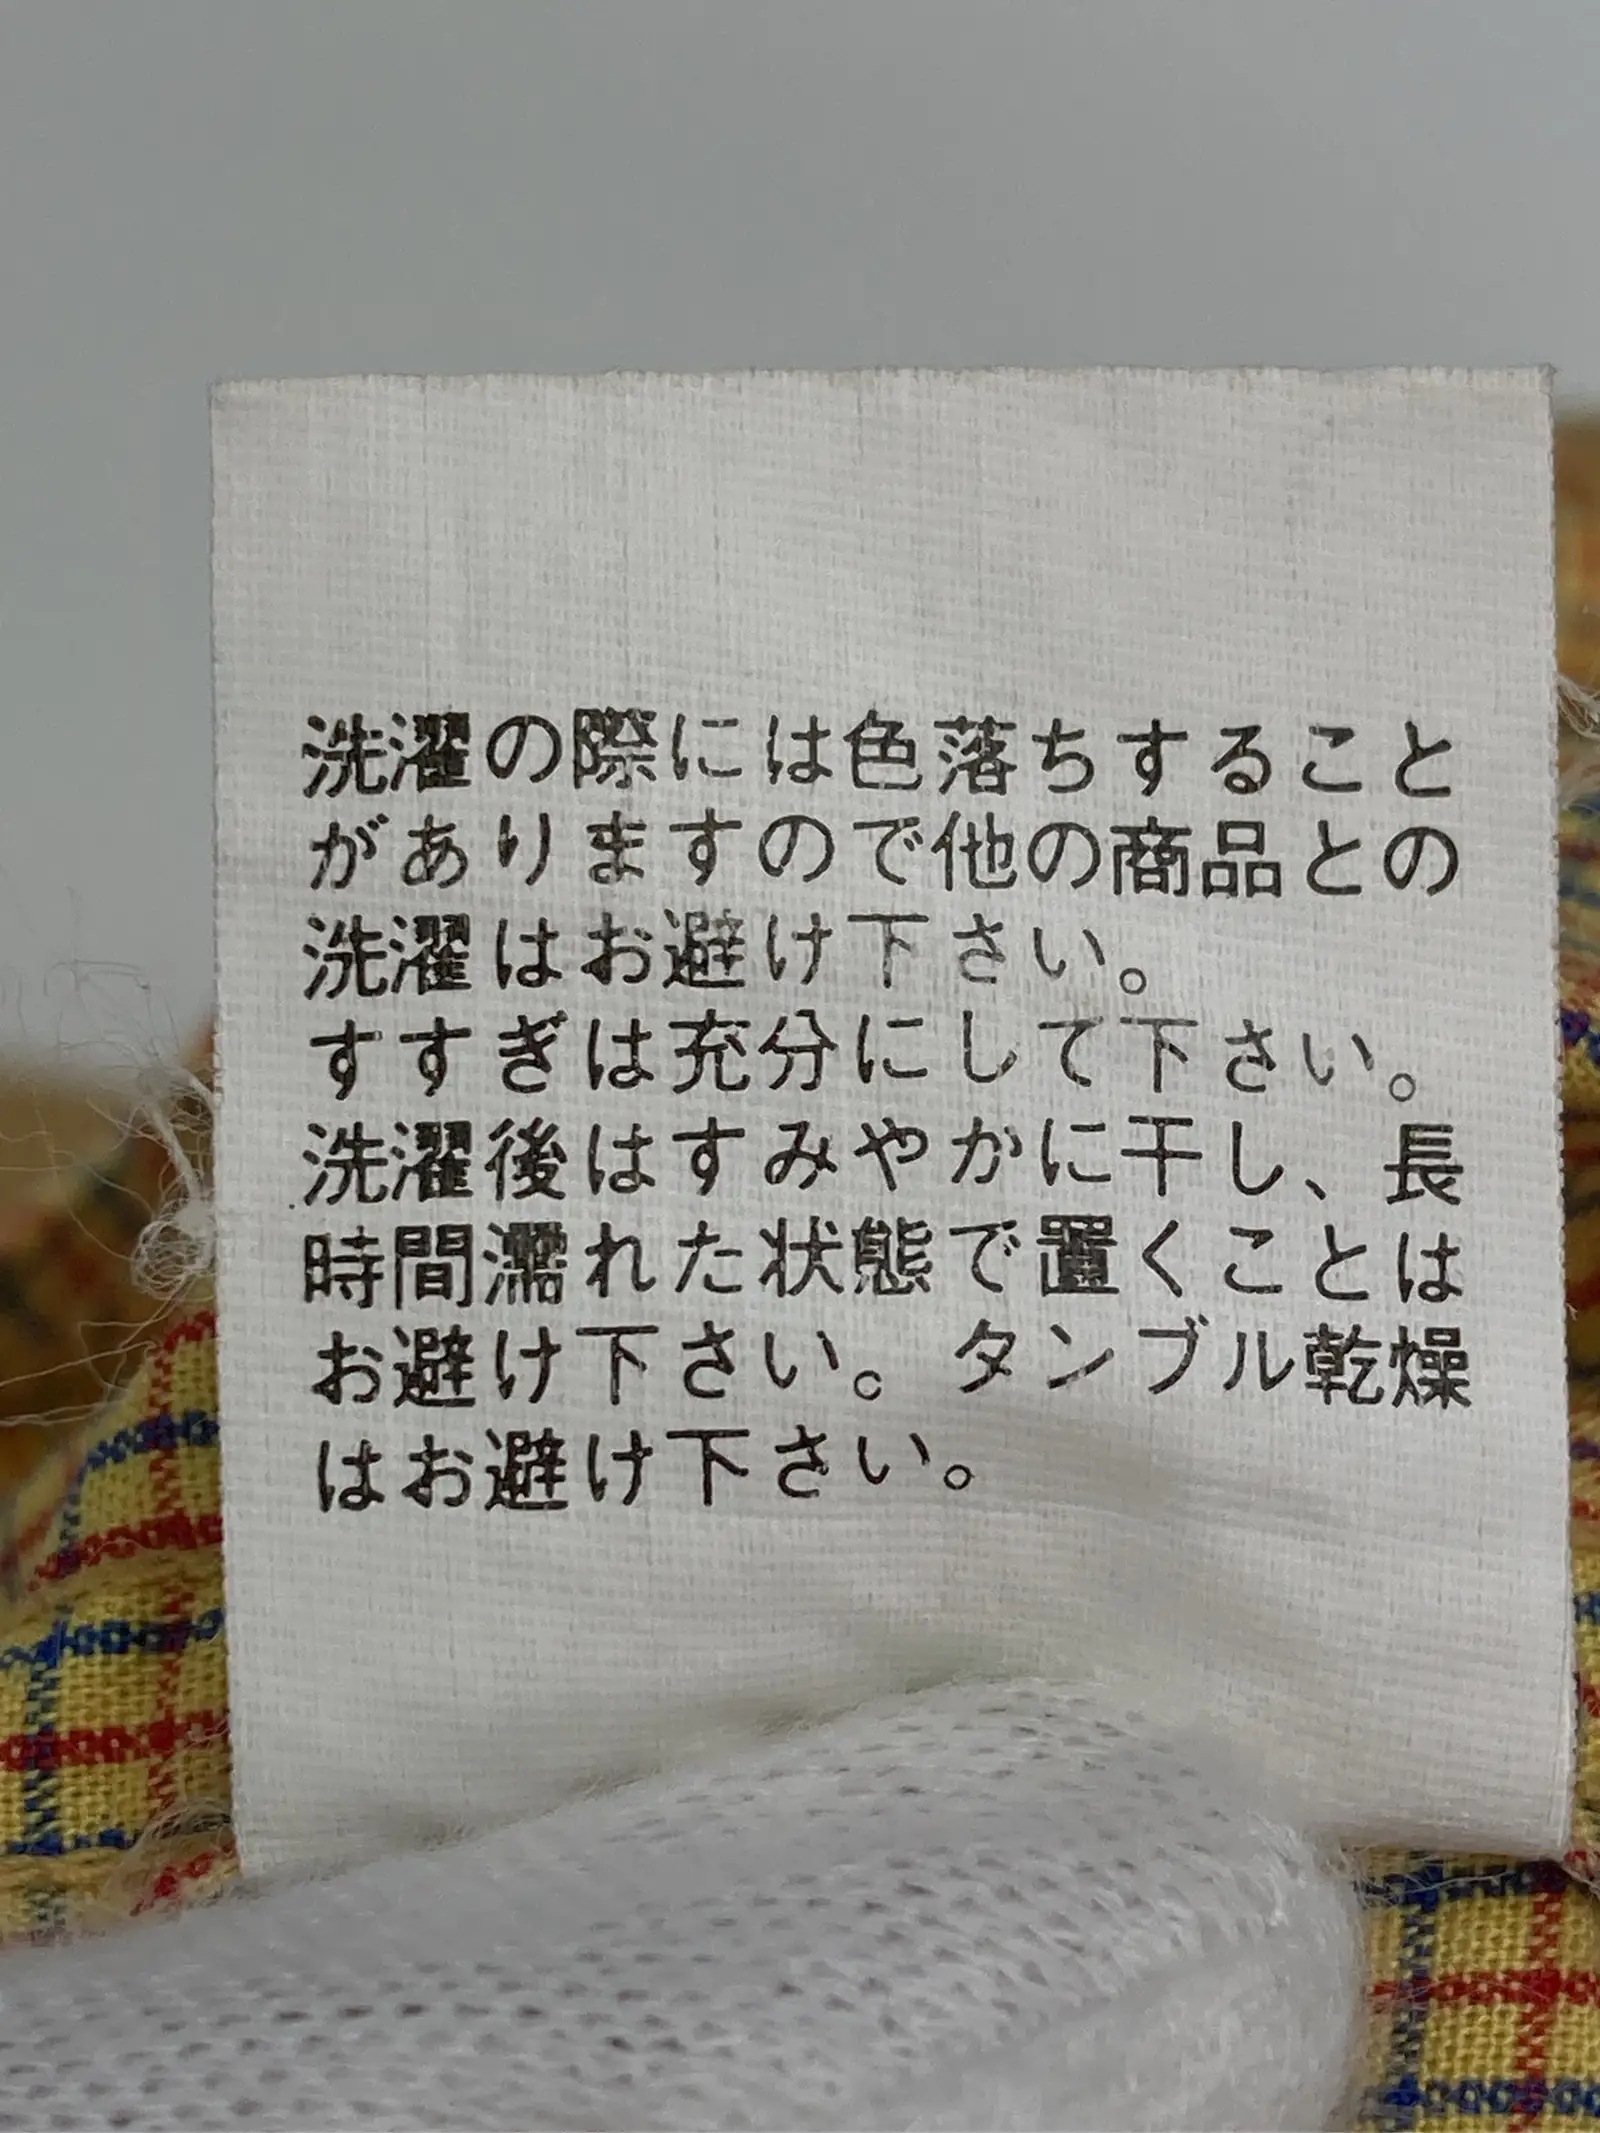 洗濯の際には色落ちすること
がありますので他の商品との
洗濯はお避け下さい。
すすぎは充分にして下さい。
洗濯後はすみやかに干し、長
時間濡れた状態で置くことは
お避け下さい。タンブル乾燥
はお避け下さい。